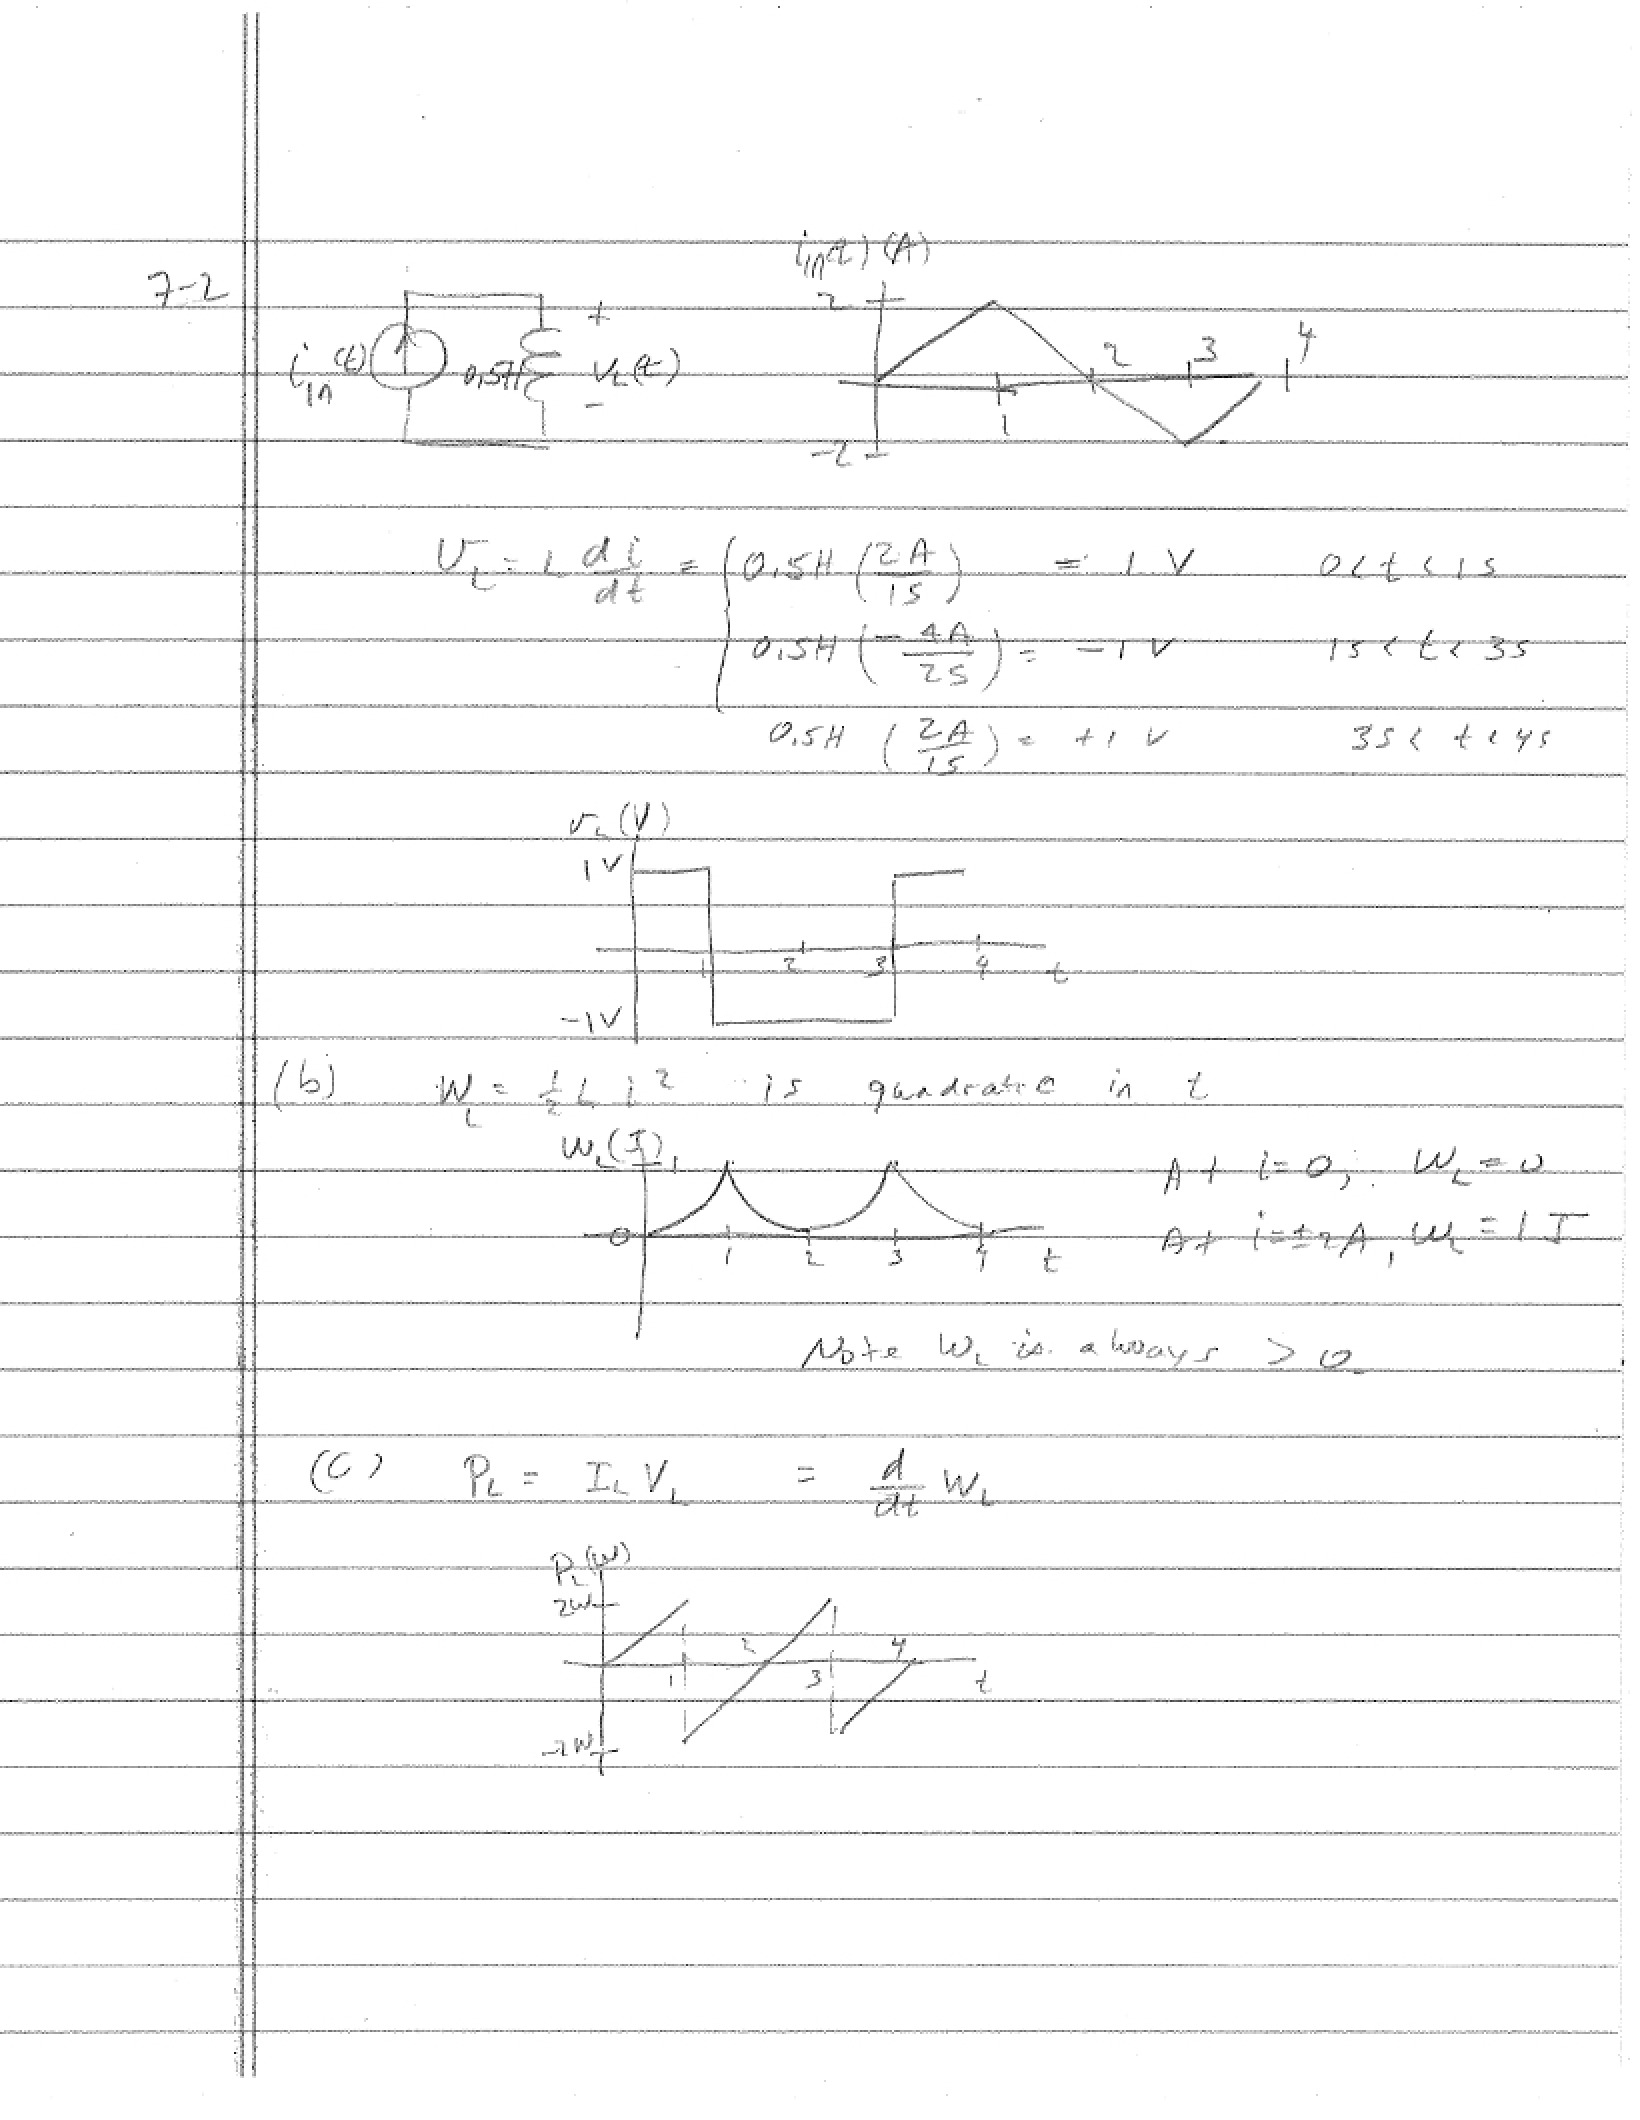 7-2
i_in(t) 0.5H + V_L(t) -
i_in(t) (A)
2
1 2 3 4
-2
V_L = L di/dt = { 0.5H (2A/1S) = 1 V 0 < t < 1s
0.5H (-4A/2S) = -1 V 1s < t < 3s
0.5H (2A/1S) = +1 V 3s < t < 4s
v_L (V)
1V
1 2 3 4 t
-1V
(b) W_L = 1/2 L i² is quadratic in t
W_L (J) 1 At i=0, W_L = 0
0 1 2 3 4 t At i=±2A, W_L = 1 J
Note W_L is always > 0
(c) P_L = I_L V_L = d/dt W_L
P_L (W)
2W
1 2 3 4 t
-2W